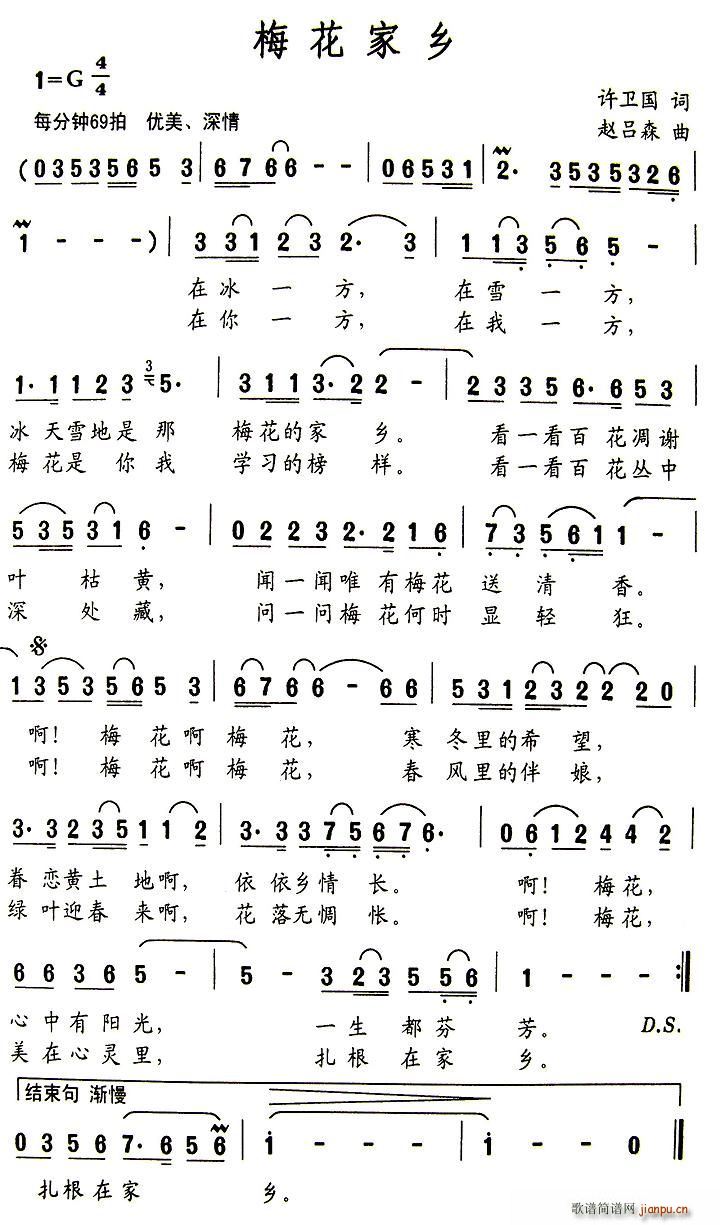 梅花家乡
1=G 4/4
许卫国 词
每分钟69拍 优美、深情
赵吕森 曲
(0353565 3 | 6766 - - | 06531 | 2· 3535326 |
1 - - -) | 331232· 3 | 113565 - |
在冰一方， 在雪一方，
在你一方， 在我一方，
1·1123 3 5· | 3113·22 - | 23356·653 |
冰天雪地是那 梅花的家乡。 看一看百花凋谢
梅花是你我 学习的榜样。 看一看百花丛中
535316 - | 02232·216 | 735611 - |
叶枯黄， 闻一闻唯有梅花送清香。
深处藏， 问一问梅花何时显轻狂。
1353565 3 | 6766 - 66 | 53123222 20 |
啊！梅花啊梅花， 寒冬里的希望，
啊！梅花啊梅花， 春风里的伴娘，
3·323511 2 | 3·3375676· | 0612442 |
眷恋黄土地啊， 依依乡情长。 啊！梅花，
绿叶迎春来啊， 花落无惆怅。 啊！梅花，
66365 - | 5 - 323556 | 1 - - - :‖
心中有阳光， 一生都芬芳。 D.S.
美在心灵里， 扎根在家乡。
结束句 渐慢
03567·656 | i - - - | i - - 0 ‖
扎根在家乡。
歌谱简谱网
jianpu.cn